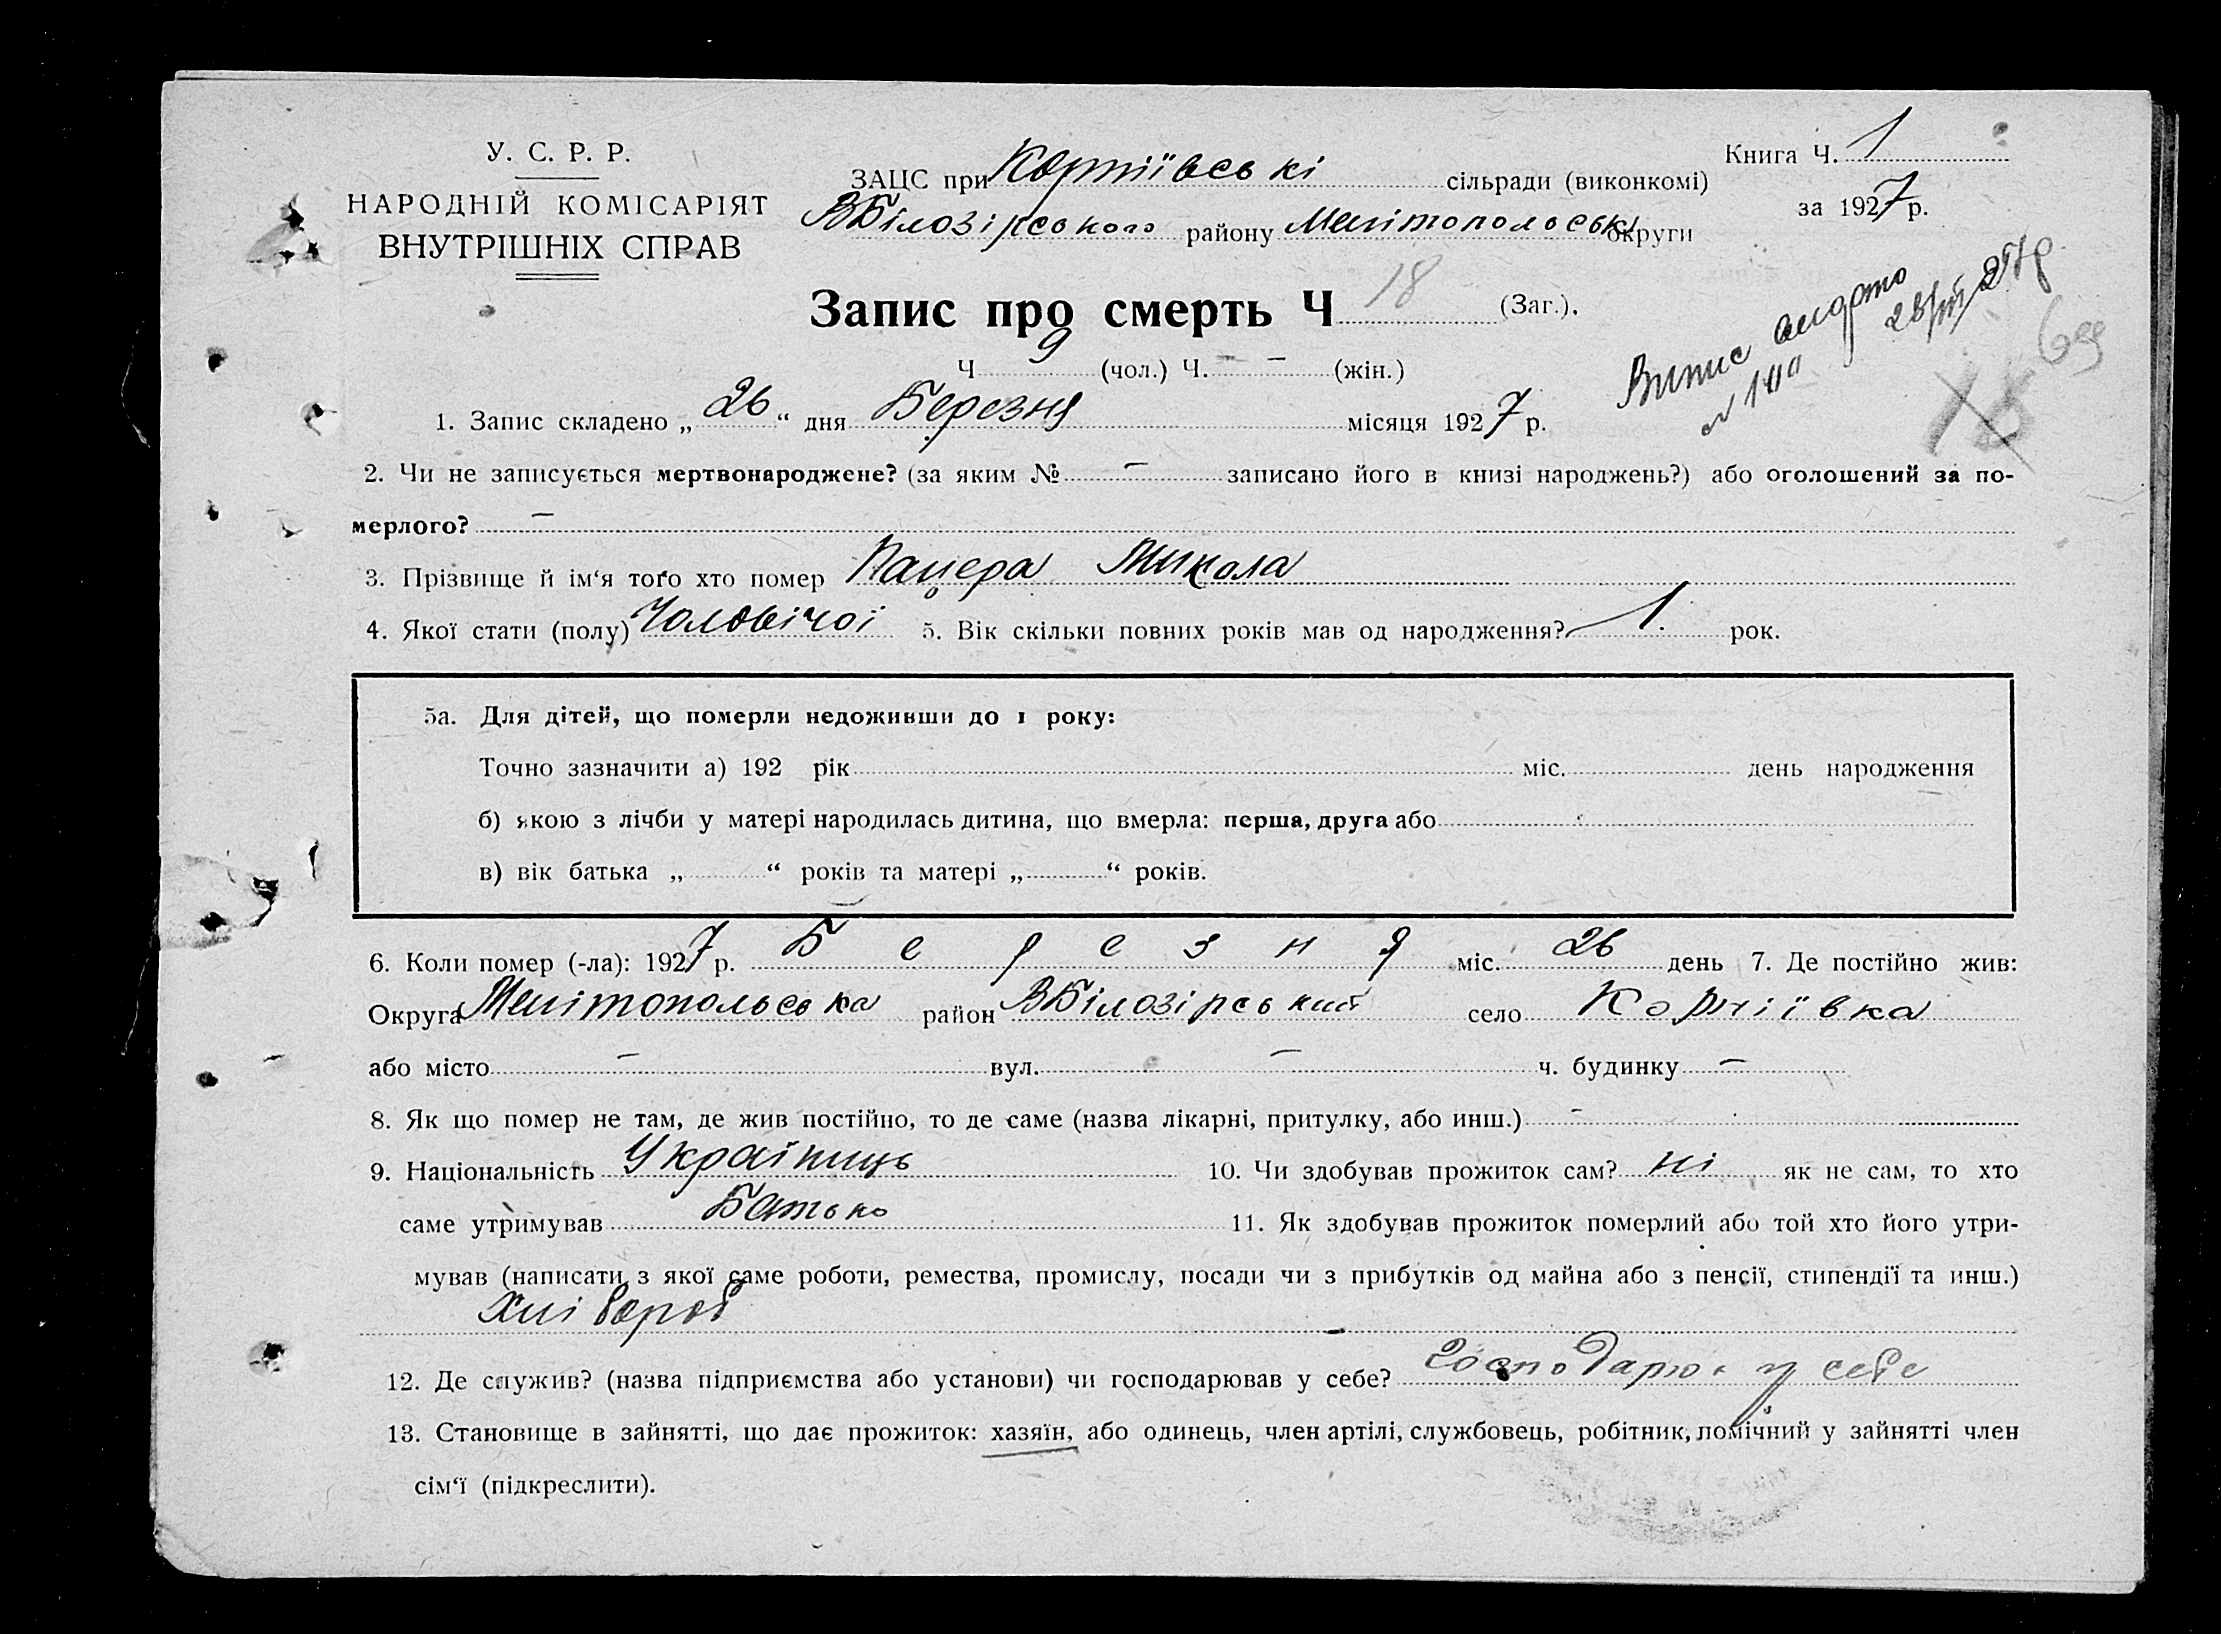 У. С. Р. Р.
НАРОДНІЙ КОМІСАРІЯТ
ВНУТРІШНІХ СПРАВ
ЗАЦС при сільради (виконкомі)
ВБілозірського району Мелітопольськ округи
Книга Ч. 1
за 1927 р.
Запис про смерть Ч 18 (Заг.).
Ч 9 (чол.) Ч. – (жін.)
Випис видато
69
1. Запис складено „26“ дня Березня місяця 1927 р.
2. Чи не записується мертвонароджене? (за яким № – записано його в книзі народжень?) або оголошений за по-
мерлого? –
3. Прізвище й ім‘я того хто помер Микола
4. Якої стати (полу) Чоловічої 5. Вік скільки повних років мав од народження? 1. рок.
5а. Для дітей, що померли недоживши до 1 року:
Точно зазначити а) 192 рік міс. день народження
б) якою з лічби у матері народилась дитина, що вмерла: перша, друга або
в) вік батька „ “ років та матері „ “ років.
6. Коли помер (-ла): 1927 р. Березня міс. 26 день 7. Де постійно жив:
Округа Мелітопольська район ВБілозірський село
або місто – вул. – ч. будинку –
8. Як що помер не там, де жив постійно, то де саме (назва лікарні, притулку, або инш.) –
9. Національність Українець 10. Чи здобував прожиток сам? ні як не сам, то хто
саме утримував Батько 11. Як здобував прожиток померлий або той хто його утри-
мував (написати з якої саме роботи, ремества, промислу, посади чи з прибутків од майна або з пенсії, стипендії та инш.)
Хлібороб
12. Де служив? (назва підприємства або установи) чи господарював у себе? у себе
13. Становище в зайнятті, що дає прожиток: хазяїн, або одинець, член артілі, службовець, робітник, помічний у зайнятті член
сім‘ї (підкреслити).